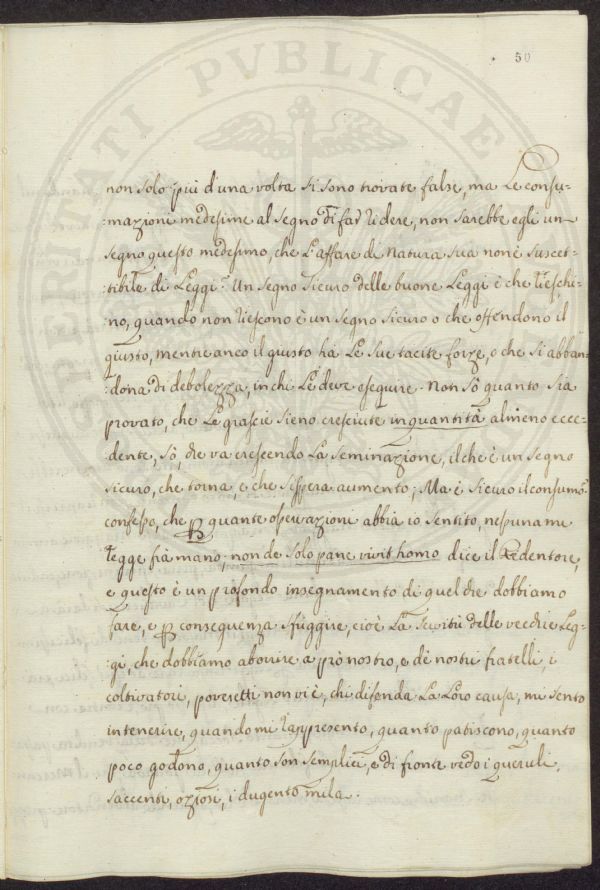 50
non solo più d'una volta si sono trovate false, ma Le consu-
:mazione medesime al segno di far ridere, non sarebbe egli un
segno questo medesimo, che L'affare di Natura sua non è suscet-
:tibile di Leggi? Un segno sicuro delle buone Leggi è che rieschi-
no, quando non riescono è un segno sicuro o che offendono il
giusto, mentre anco il giusto ha Le sue tacite forze, o che si abban-
:dona di debolezza, in chi Le deve eseguire. Non sò quanto sia
provato, che Le grascie sieno cresciute in quantità almeno ecce-
dente, sò, che va crescendo La seminazione, il che è un segno
sicuro, che torna, e che si spera aumento; Ma è sicuro il consumo,
confesso, che p quante osservazioni abbia io sentito, nessuna me
regge frà mano, non de solo pane vivit homo dice il Redentore,
e questo è un profondo insegnamento di quel che dobbiamo
fare, e p conseguenza sfuggire, cioè La servitù delle vecchie Leg-
gi, che dobbiamo aborrire a prò nostro, e de nostri fratelli, i
coltivatori, poveretti non vi è, chi difenda La Loro causa, mi sento
intenerire, quando mi rappresento, quanto patiscono, quanto
poco godono, quanto son semplici, e di fronte vedo i queruli,
saccenti, oziosi, i dugento mila.
PVBLICAE